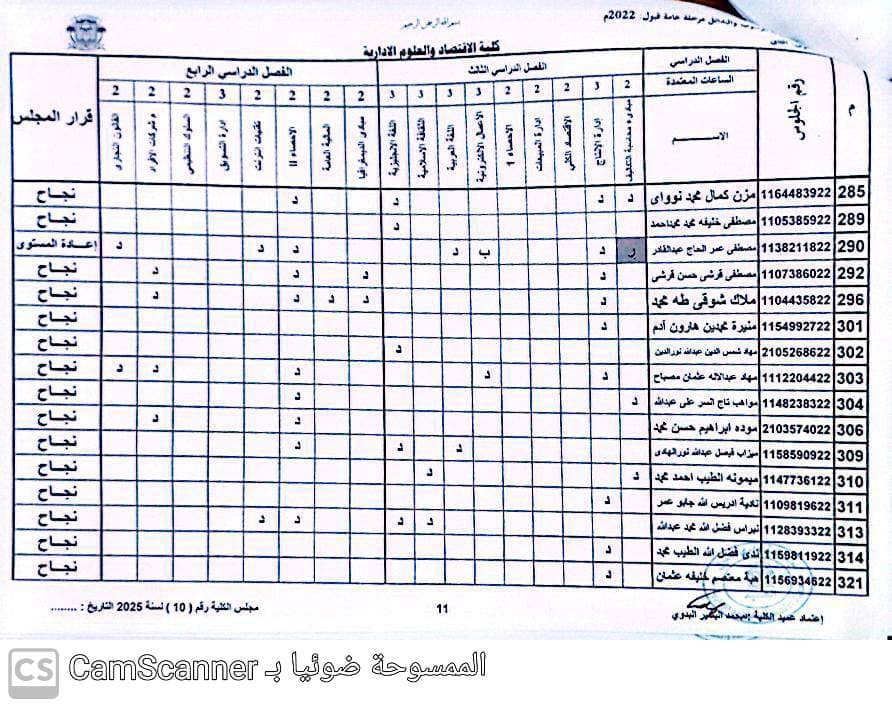 بسم الله الرحمن الرحيم
مرحلة عامة قبول 2022م
كلية الاقتصاد والعلوم الادارية
م
رقم الجلوس
الفصل الدراسي
الفصل الدراسي الثالث
الفصل الدراسي الرابع
قرار المجلس
الساعات المعتمدة 2 3 2 2 2 3 3 3 3 2 2 2 2 3 2 2 2
الاســـم
مبادىء محاسبة التكاليف
إدارة الإنتاج
الاقتصاد الكلي
ادارة المبيعات
الاحصاء 1
الأعمال الالكترونية
اللغة العربية
الثقافة الاسلامية
اللغة الانجليزية
مبادئ الديمغرافيا
المالية العامة
الاحصاء II
تقنيات انترنت
إدارة التسويق
السلوك التنظيمي
القانون التجارى
285 1164483922 مزن كمال محمد نوواى د د د د نجــاح
289 1105385922 مصطفى خليفه محمد محمداحمد د نجــاح
290 1138211822 مصطفى عمر الحاج عبدالقادر ر د ب د د د د إعــادة المستوى
292 1107386022 مصطفى قرشي حسن قرشي د د د د نجــاح
296 1104435822 ملاك شوقي طه محمد د د د د د نجــاح
301 1154992722 منيرة محمدين هارون آدم د نجــاح
302 2105268622 مهاد شمس الدين عبدالله نورالدين د نجــاح
303 1112204422 مهاد عبدالاله عثمان مصباح د د د د د نجــاح
304 1148238322 مواهب تاج السر على عبدالله د د نجــاح
306 2103574022 موده ابراهيم حسن محمد د د نجــاح
309 1158590922 ميزاب فيصل عبدالله نورالهادى د د د نجــاح
310 1147736122 ميمونه الطيب احمد محمد د د نجــاح
311 1109819622 نادية ادريس الله جابو عمر د نجــاح
313 1128393322 نبراس فضل الله محمد عبدالله د د د د نجــاح
314 1159811922 ندى فضل الله الطيب محمد د نجــاح
321 1156934622 هبة معتصم خليفه عثمان د نجــاح
إعتماد عميد الكلية :محمد البشير البدوي
11
مجلس الكلية رقم ( 10 ) لسنة 2025 التاريخ : ........
CS CamScanner الممسوحة ضوئيا بـ